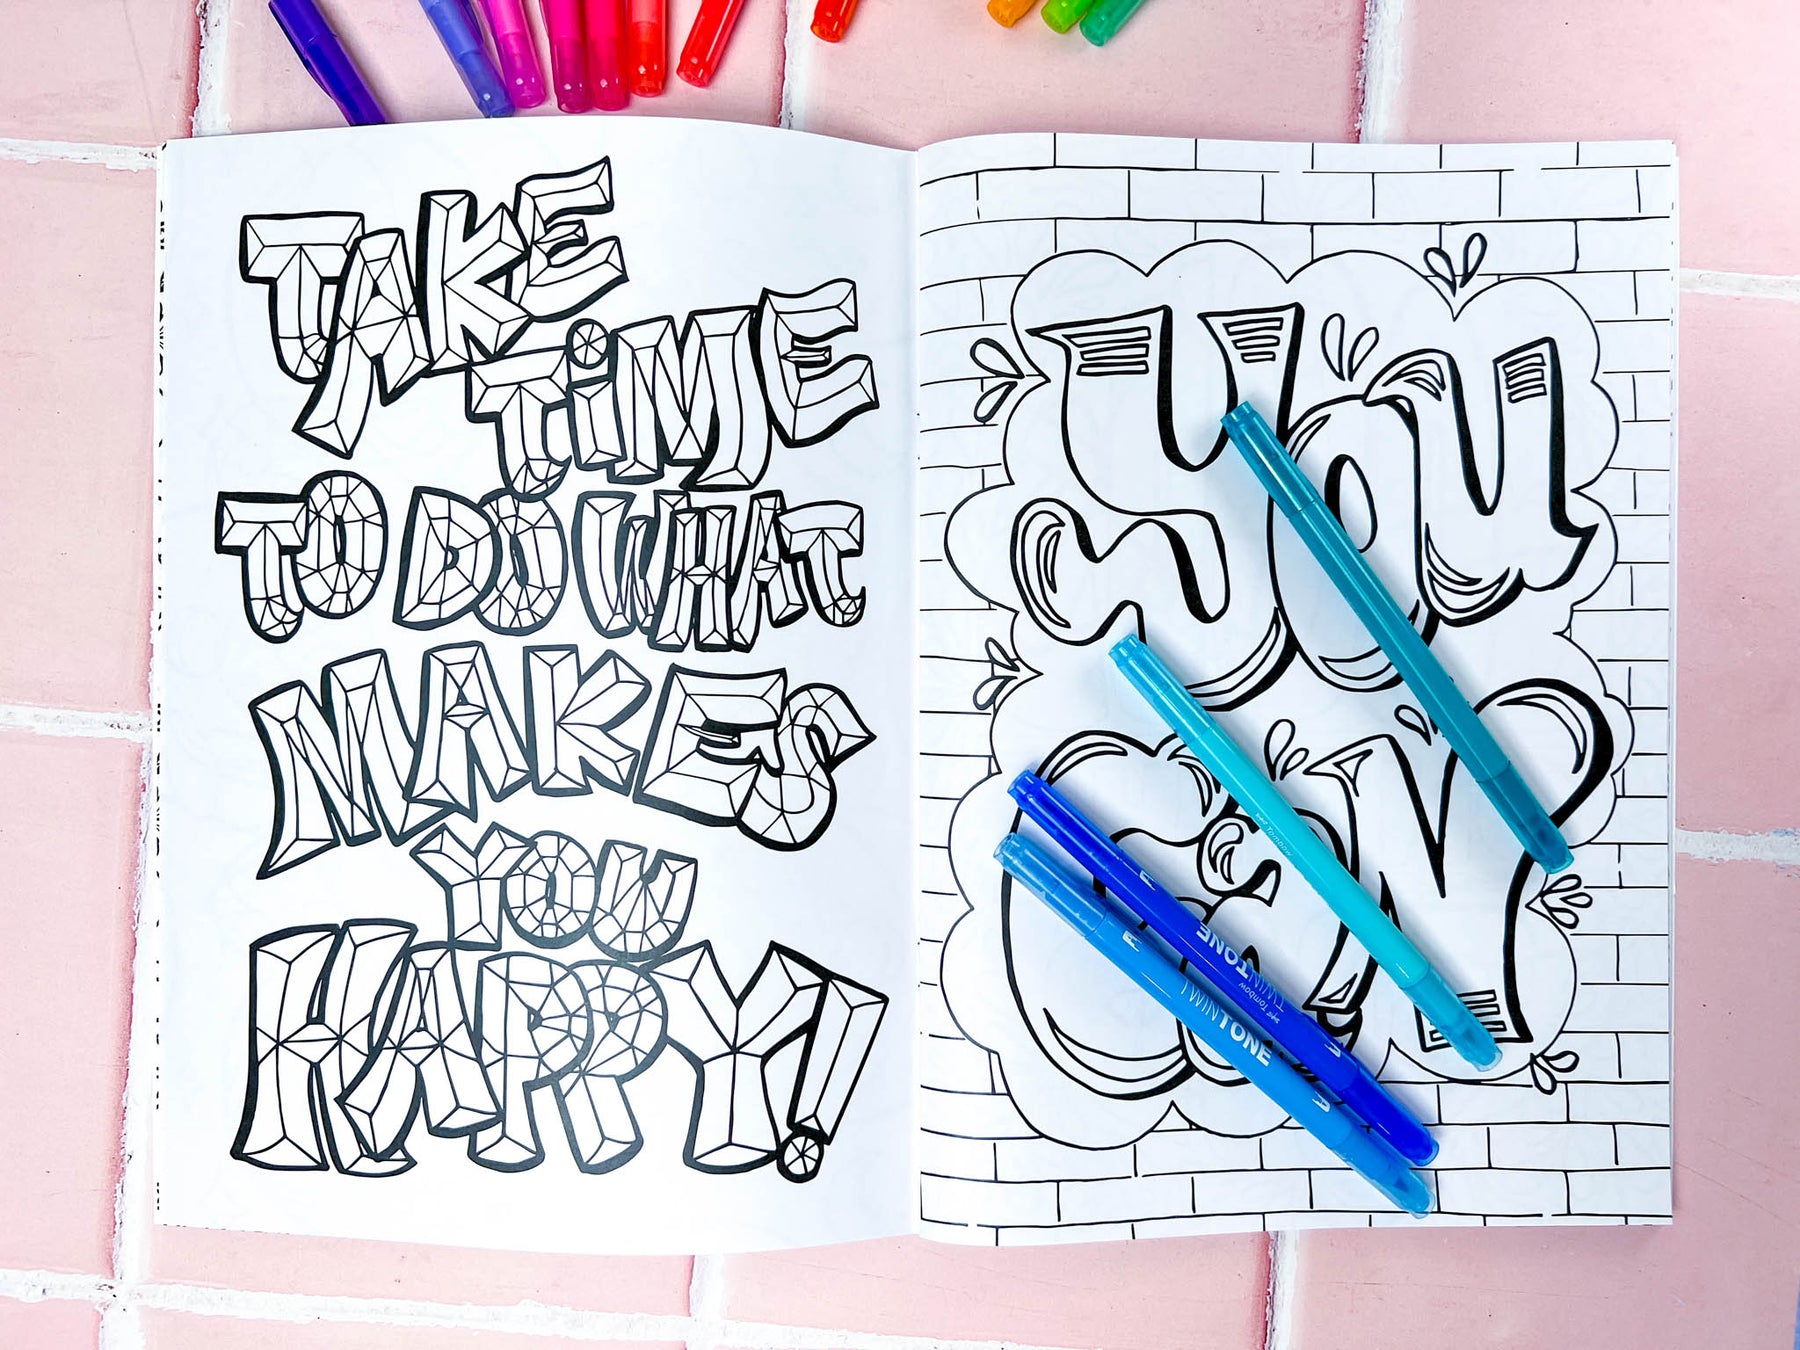 TAKE
TiME
TO DO WHAT
MAKES
YOU
HAPPY!
You
CaN
Tombow
TWINTONE
Tombow
TWINTONE